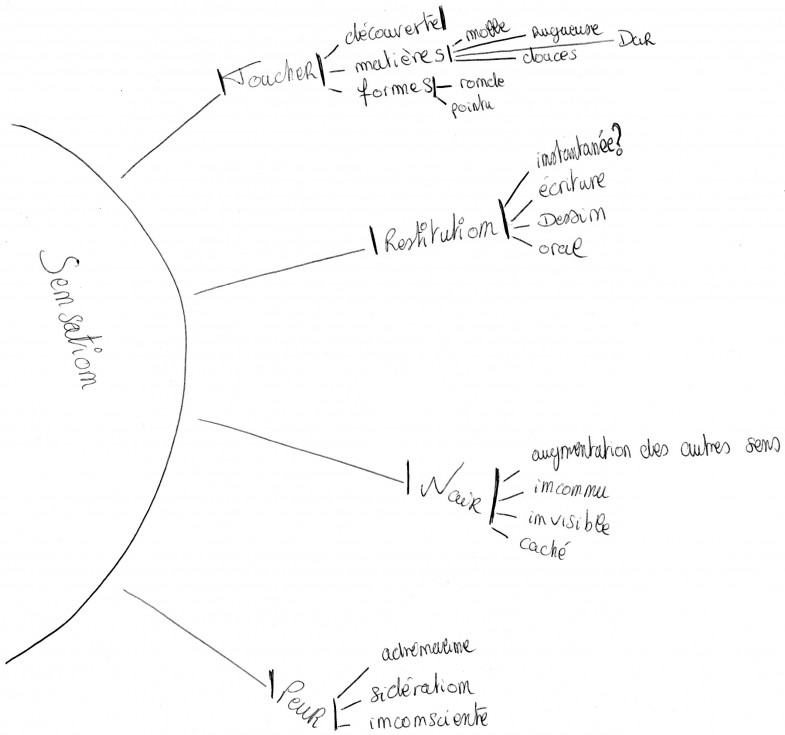 Sensation
Toucher
découverte
matières
molle
rugueuse
Dur
douces
formes
ronde
pointu
Restitution
instantanée?
écriture
Dessin
oral
Noir
augmentation des autres sens
inconnu
invisible
caché
Peur
adrénaline
sidération
inconsciente